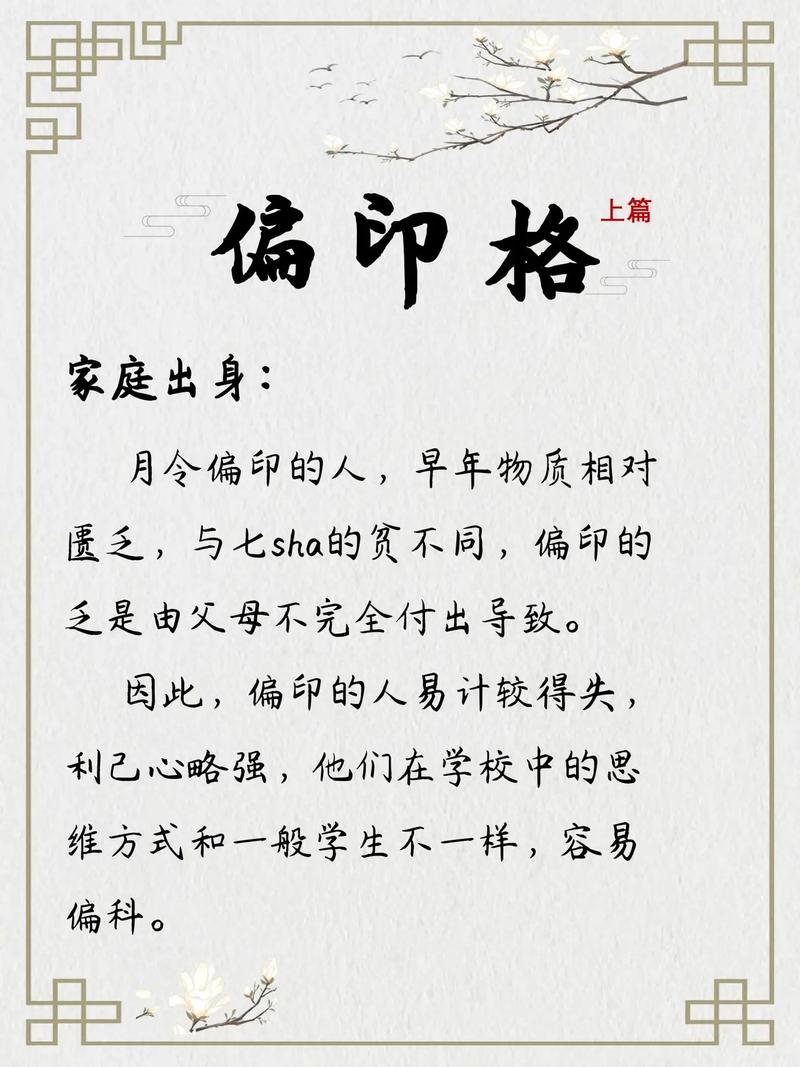 偏印格 上篇
家庭出身：
月令偏印的人，早年物质相对
匮乏，与七sha的贫不同，偏印的
乏是由父母不完全付出导致。
因此，偏印的人易计较得失，
利己心略强，他们在学校中的思
维方式和一般学生不一样，容易
偏科。